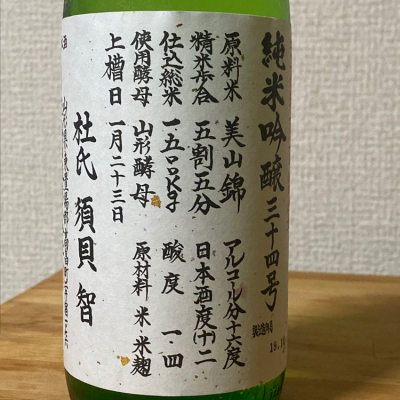 純米吟醸三十四号
原料米 美山錦 アルコール分十六度
精米歩合 五割五分 日本酒度(+)二
仕込総米 一、五〇〇kg 酸度 一・四
使用酵母 山形酵母 原材料 米 米麹
上槽日 一月二十三日
杜氏 須貝 智
製造年月
19.1
酒